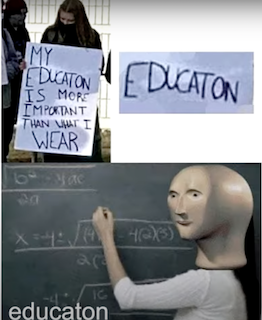 MY
EDUCATON
IS MORE
IMPORTANT
THAN WHAT I
WEAR
EDUCATON
b² - 4ac
2a
x = -4 ± √(4)² - 4(2)(3)
2(2
-4 ± √16
educaton